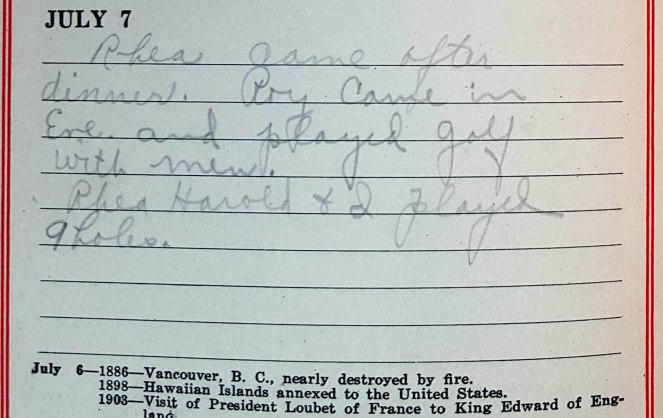 JULY 7
Rhea came after
dinner. Roy Came in
Eve. and played golf
with men.
Rhea Harold & I played
9 holes.
July 6—1886—Vancouver, B. C., nearly destroyed by fire.
1898—Hawaiian Islands annexed to the United States.
1903—Visit of President Loubet of France to King Edward of Eng-
land.